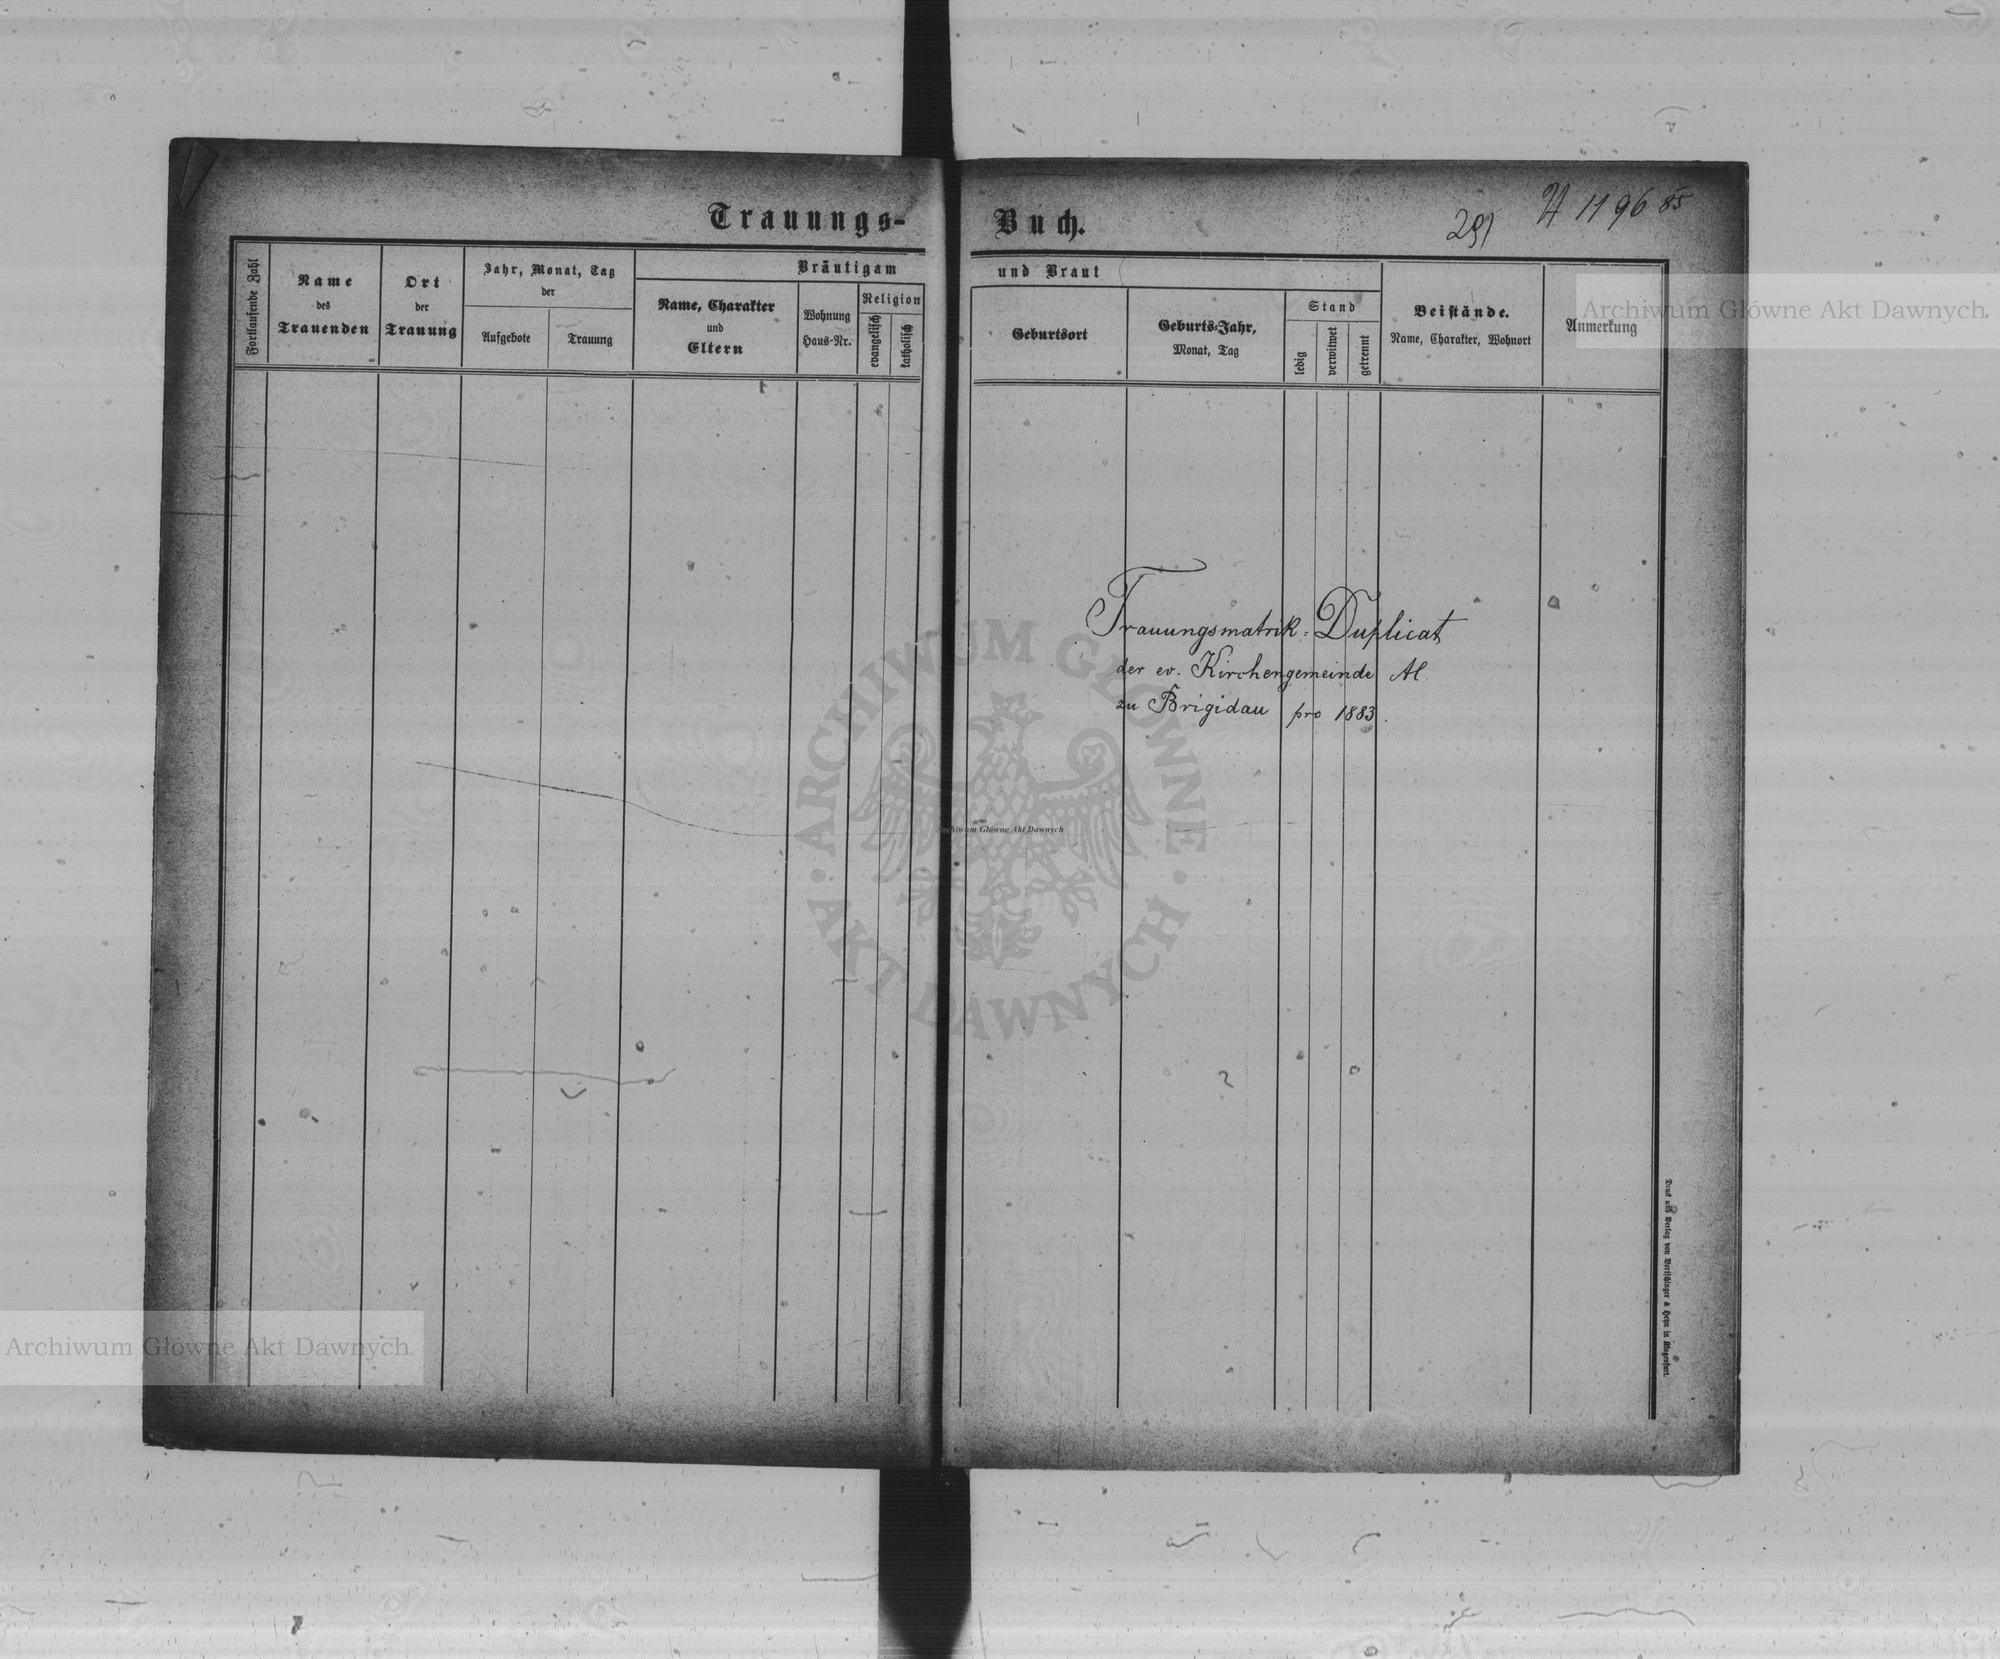 Trauungs-Buch.
291
1196 85
Fortlaufende Zahl
Name
des
Trauenden
Ort
der
Trauung
Jahr, Monat, Tag
der
Aufgebote
Trauung
Bräutigam und Braut
Name, Charakter
und
Eltern
Wohnung
Haus-Nr.
Religion
evangelisch
katholisch
Geburtsort
Geburts-Jahr,
Monat, Tag
Stand
ledig
verwitwet
getrennt
Beistände.
Name, Charakter, Wohnort
Anmerkung
Archiwum Główne Akt Dawnych
Trauungsmatrik-Duplicat
der ev. Kirchengemeinde AC
zu Brigidau pro 1883.
ARCHIWUM GŁÓWNE
AKT DAWNYCH
Archiwum Główne Akt Dawnych
Archiwum Główne Akt Dawnych
Druck und Verlag von Bertschinger & Heyn in Klagenfurt.